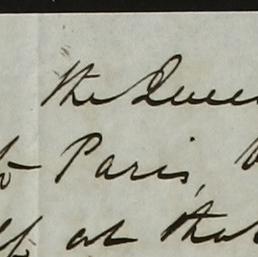 the Queen
to Paris,
at that